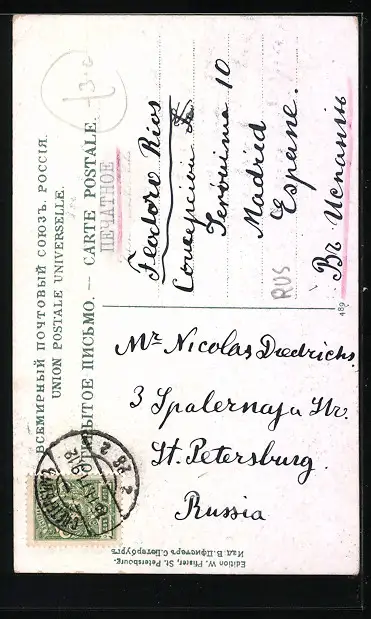 ВСЕМИРНЫЙ ПОЧТОВЫЙ СОЮЗЪ. РОССІЯ.
UNION POSTALE UNIVERSELLE.
ОТКРЫТОЕ ПИСЬМО. — CARTE POSTALE.
ПЕЧАТНОЕ
Feodoro Rios
Concepcion
Jeronima 10
Madrid
Espane.
Въ Испанiю
RUS
489
Mr. Nicolas Diedrichs.
3 Spalernaja Str.
St. Petersburg.
Russia
Edition W. Pfister, St. Petersbourg.
Изд. В. Пфистеръ С. Петербургъ